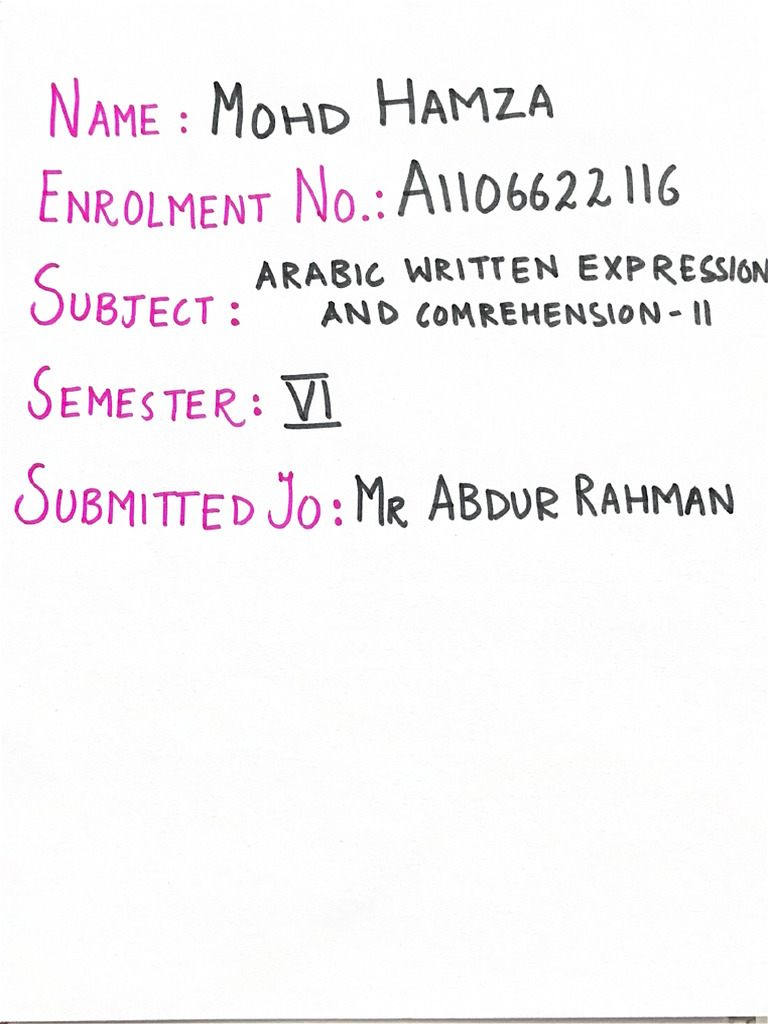 NAME : MOHD HAMZA
ENROLMENT NO.: A1106622116
SUBJECT : ARABIC WRITTEN EXPRESSION
AND COMREHENSION - II
SEMESTER : VI
SUBMITTED TO : MR ABDUR RAHMAN